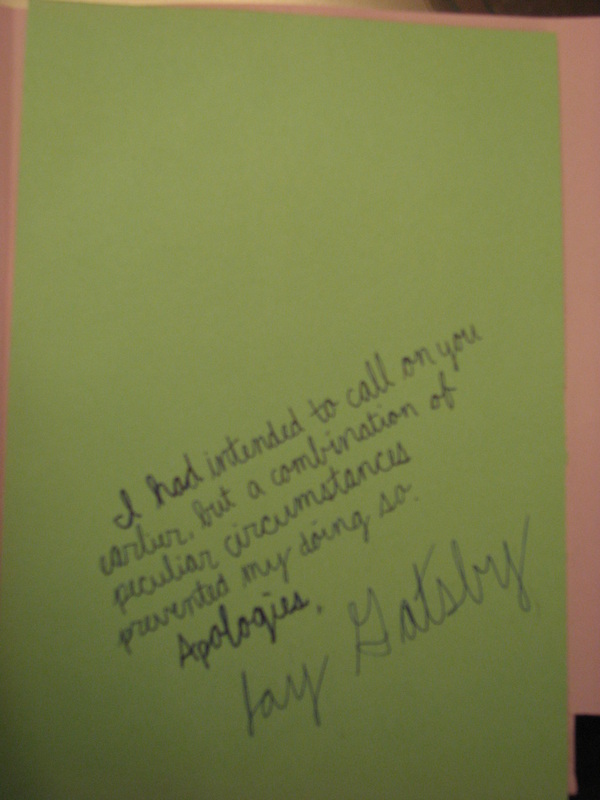 I had intended to call on you
earlier, but a combination of
peculiar circumstances
prevented my doing so.
Apologies,
Jay Gatsby